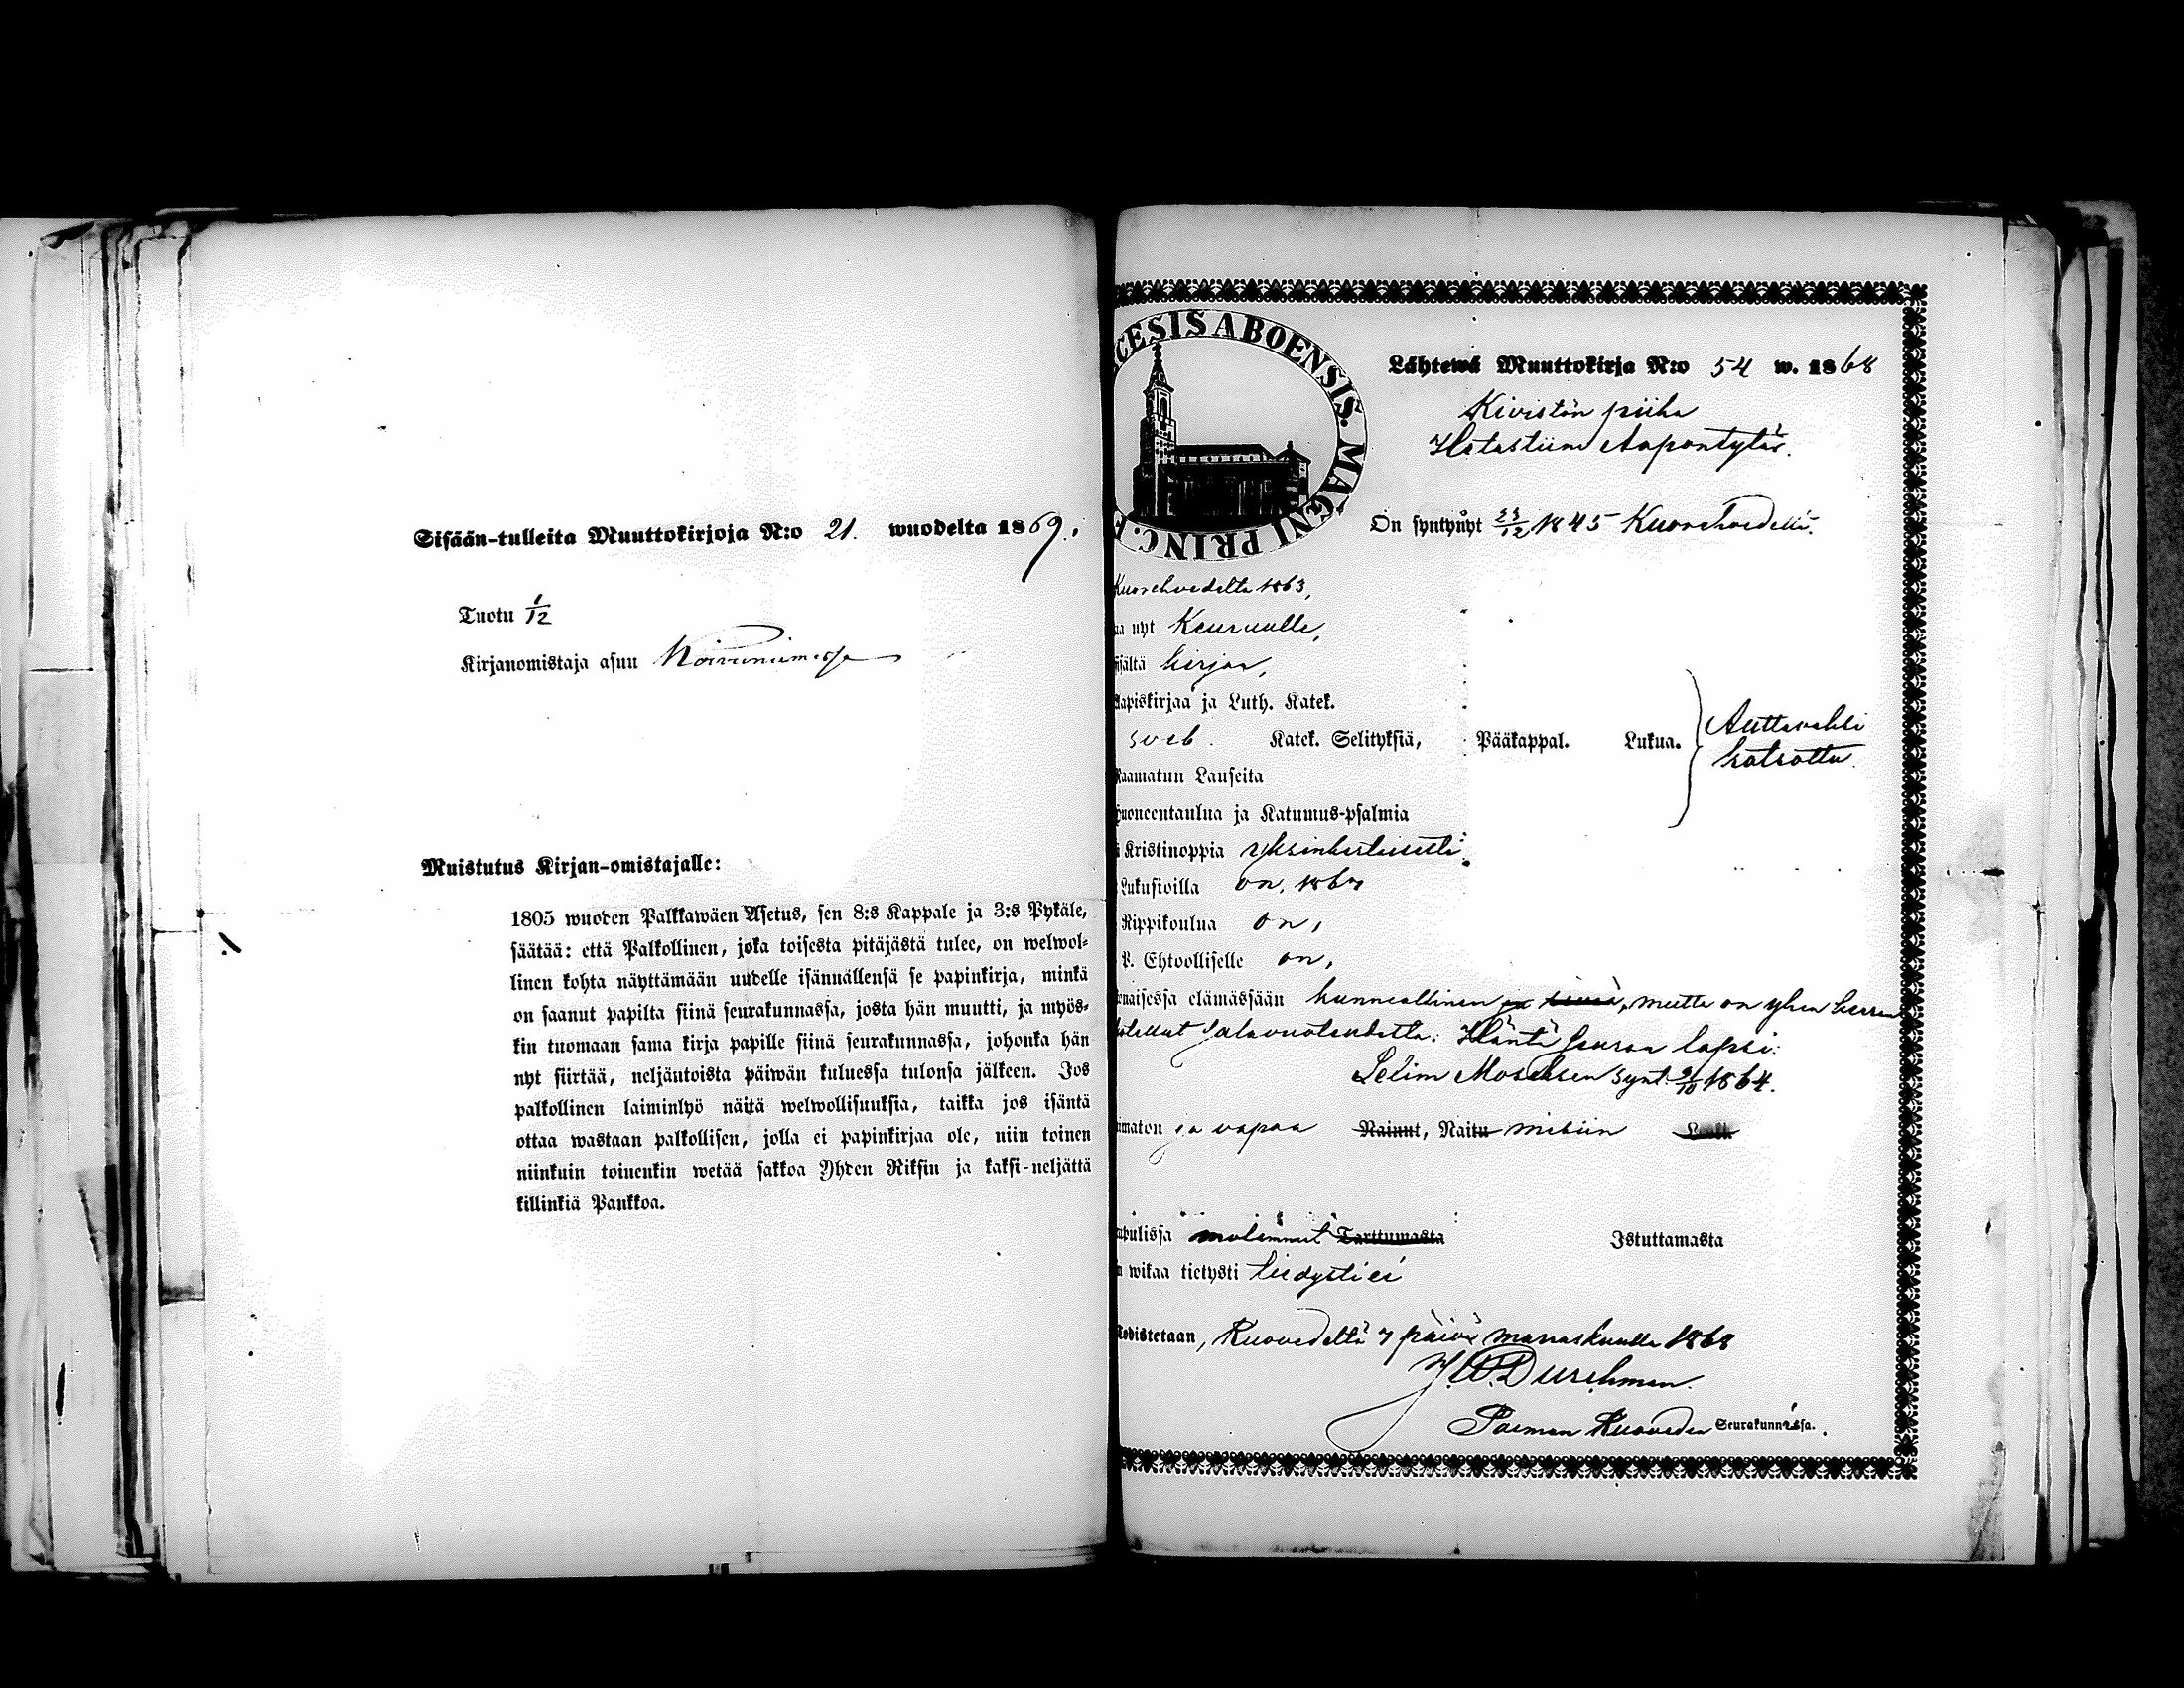 Sisään-tulleita Muuttokirjoja N:o 21. wuodelta 1869.
Tuotu 1/12
Kirjanomistaja asuu Koivuniemessä
Muistutus Kirjan-omistajalle:
1805 wuoden Palkkawäen Asetus, sen 8:s Kappale ja 3:s Pykäle,
säätää: että Palkollinen, joka toisesta pitäjästä tulee, on welwol-
linen kohta näyttämään uudelle isännällensä se papinkirja, minkä
on saanut papilta siinä seurakunnassa, josta hän muutti, ja myös-
kin tuomaan sama kirja papille siinä seurakunnassa, johonka hän
nyt siirtää, neljäntoista päiwän kuluessa tulonsa jälkeen. Jos
palkollinen laiminlyö näitä welwollisuuksia, taikka jos isäntä
ottaa wastaan palkollisen, jolla ei papinkirjaa ole, niin toinen
niinkuin toinenkin wetää sakkoa Yhden Riksin ja kaksi-neljättä
killinkiä Pankkoa.
CESIS ABOENSIS. MAGNI PRINC. F
Lähtewä Muuttokirja N:o 54 w. 1868
Kivistön piika
Aapontytär.
On syntynyt 23/12 1845 Kuorehvedellä.
Kuorehvedeltä 1863,
aa nyt Keuruulle,
sisältä kirjan,
Aapiskirjaa ja Luth. Katek.
Katek. Selityksiä, Pääkappal. Lukua.
Auttavasti
katsottu.
Raamatun Lauseita
Huoneentaulua ja Katumus-psalmia
Kristinoppia yksinkertaisesti
Lukusioilla on, 1867
Rippikoulua on,
P. Ehtoolliselle on,
naisessa elämässään kunniallinen ja siviä, mutta on yhen kerran
salavuoteudesta: Häntä seuraa lapsi:
Selim synt. 9/10 1864.
imaton ja vapaa Nainut, Naitu mihin
apulissa molemmat Tarttumasta Istuttamasta
n wikaa tietysti tiedysti ei
Todistetaan, Ruovedeltä 7 päivä marraskuulla 1868
J. W. Durchman.
Paimen Ruoveden Seurakunnassa.